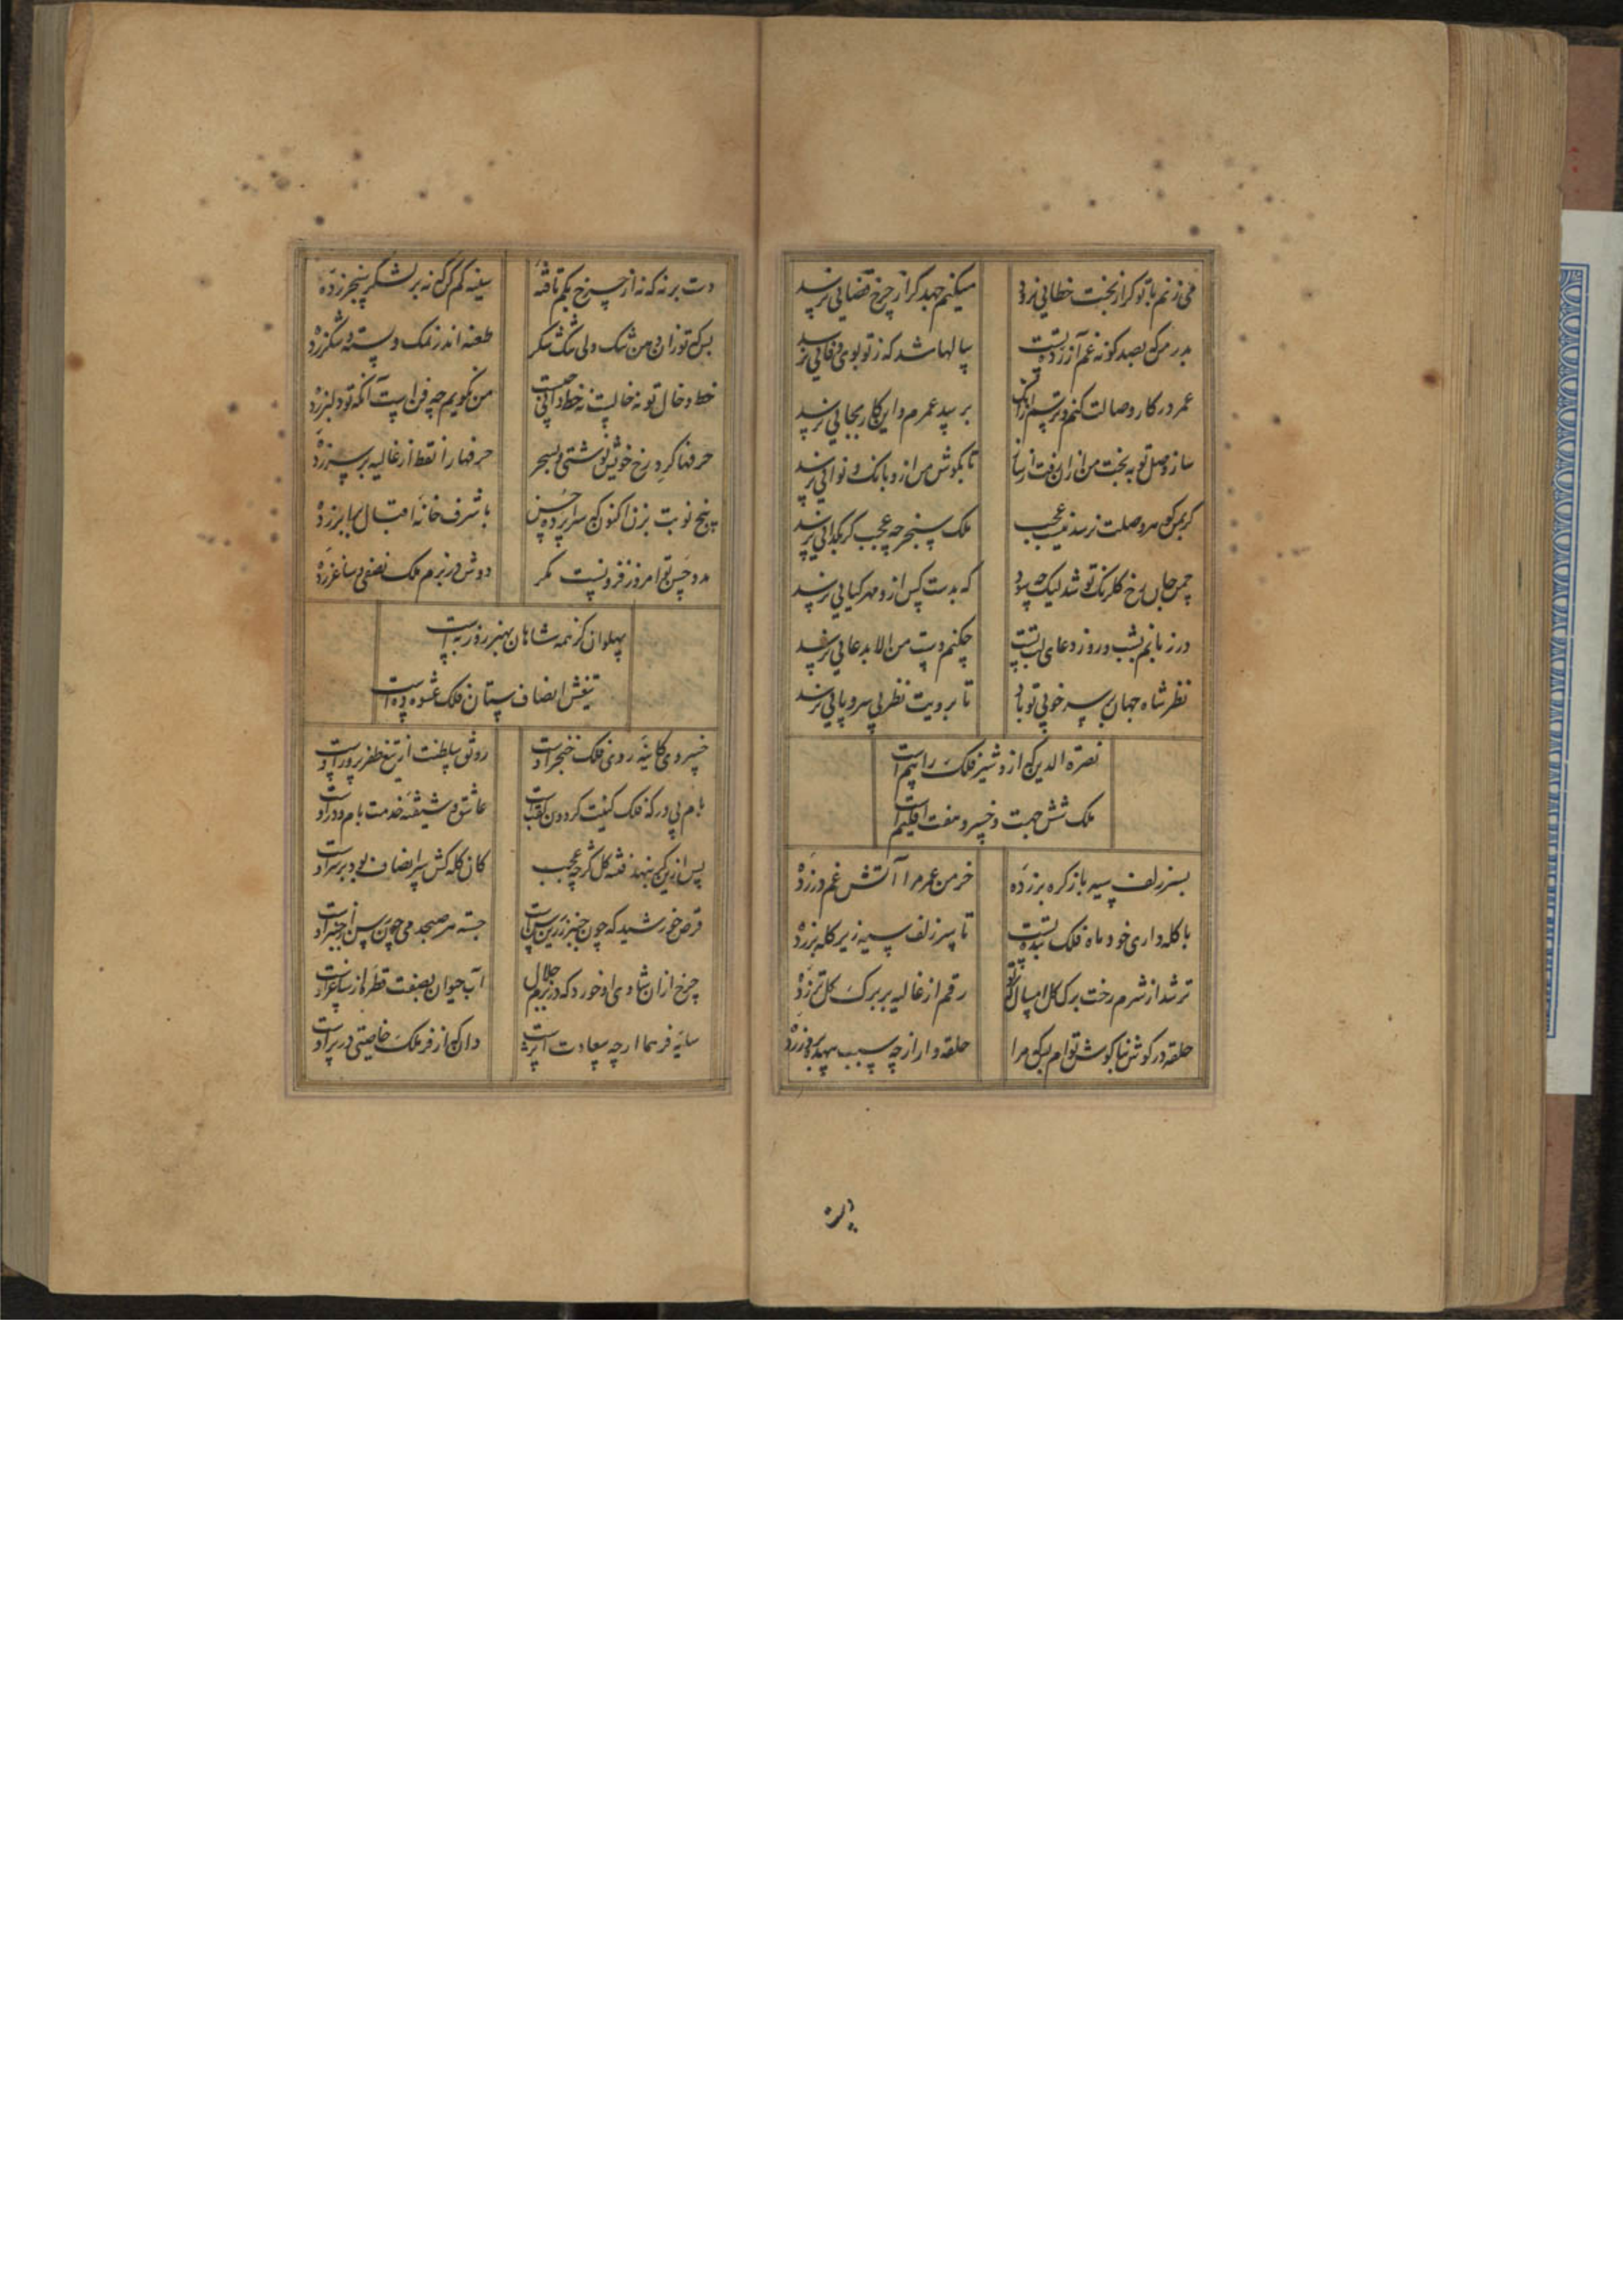 می زنم با تو گر از بخت خطایی نرود میکنم جهد گر از چرخ قضایی نرسد
بدر من که بصد گونه غم آزرده تست سالها شد که ز تو بوی وفایی نرسد
عمر در کار وصالت کنم و ترسم از آنک برسد عمرم و این کار بجایی نرسد
ساز وصل تو به بخت من از آن تا بگوش من ازو بانک و نوایی نرسد
گر بمن وصلت نرسد نیست عجب ملک سنجر چه عجب گر بگدایی نرسد
چمن جان رخ گلرنگ تو شد لیک چه سود که بدست کس ازو مهر گیایی نرسد
در زبانم بشب و روز دعای لب تست چکنم دست من الا بدعایی نرسد
نظر شاه جهان بر سر خوبی تو باد تا برویت نظر بی سر و پایی نرسد
نصرة الدین که ازو شیر فلک را بیم است
ملک شش جهت و خسرو هفت اقلیم است
بسر زلف سیه باز گره بر زده خرمن عمر مرا آتش غم در زده
با کله داری خود ماه فلک بنده تست تا سر زلف سیه زیر کله بر زده
تر شد از شرم رخت برگ گل امسال که تو رقم از غالیه بر برگ گل تر زده
حلقه در گوش بناگوش توام لیک مرا حلقه وار از چه سبب بیهده بر در زده
دست بر نه که نه از چرخ بکم تافته سینه کم کن که نه بر لشکر سنجر زده
بس که تو زان دهن تنگ ولی تنگ شکر طعنه اندر نمک و پسته و شکر زده
خط و خال تو نه خالیست نه خط دانی چیست من نگویم چه فن است آنکه تو دلبر زده
حرفها گرد رخ خویش نوشتی و بسحر حرفها را نقط از غالیه بر سر زده
پنج نوبت بزن اکنون که سراپرده حسن با شرف خانه اقبال برابر زده
مدد حسن تو امروز فزونست مگر دوش در بزم ملک نصفی و ساغر زده
پهلوان کز همه شاهان بهنر روز به است
تیغش انصاف ستان فلک عشوه ده است
خسروی کاینه روی فلک خنجر اوست رونق سلطنت از تیغ ظفر پرور اوست
بام پی در که فلک کنیت گردون لقب است عاشق و شیفته خدمت بام و در اوست
پس ازین گر ننهد فتنه کله گرچه عجب کان کله کش سر انصاف بود بر سر اوست
قرص خورشید که چون خنجر زرین سپر است جسته هر صبحدمی چون سپر از خنجر اوست
چرخ از آن شادی او خورد که در بزم جلال آب حیوان بصفت قطره از ساغر اوست
سایه فر هما ارچه سعادت اثر است دان که از فر ملک خاصیتی در پر اوست